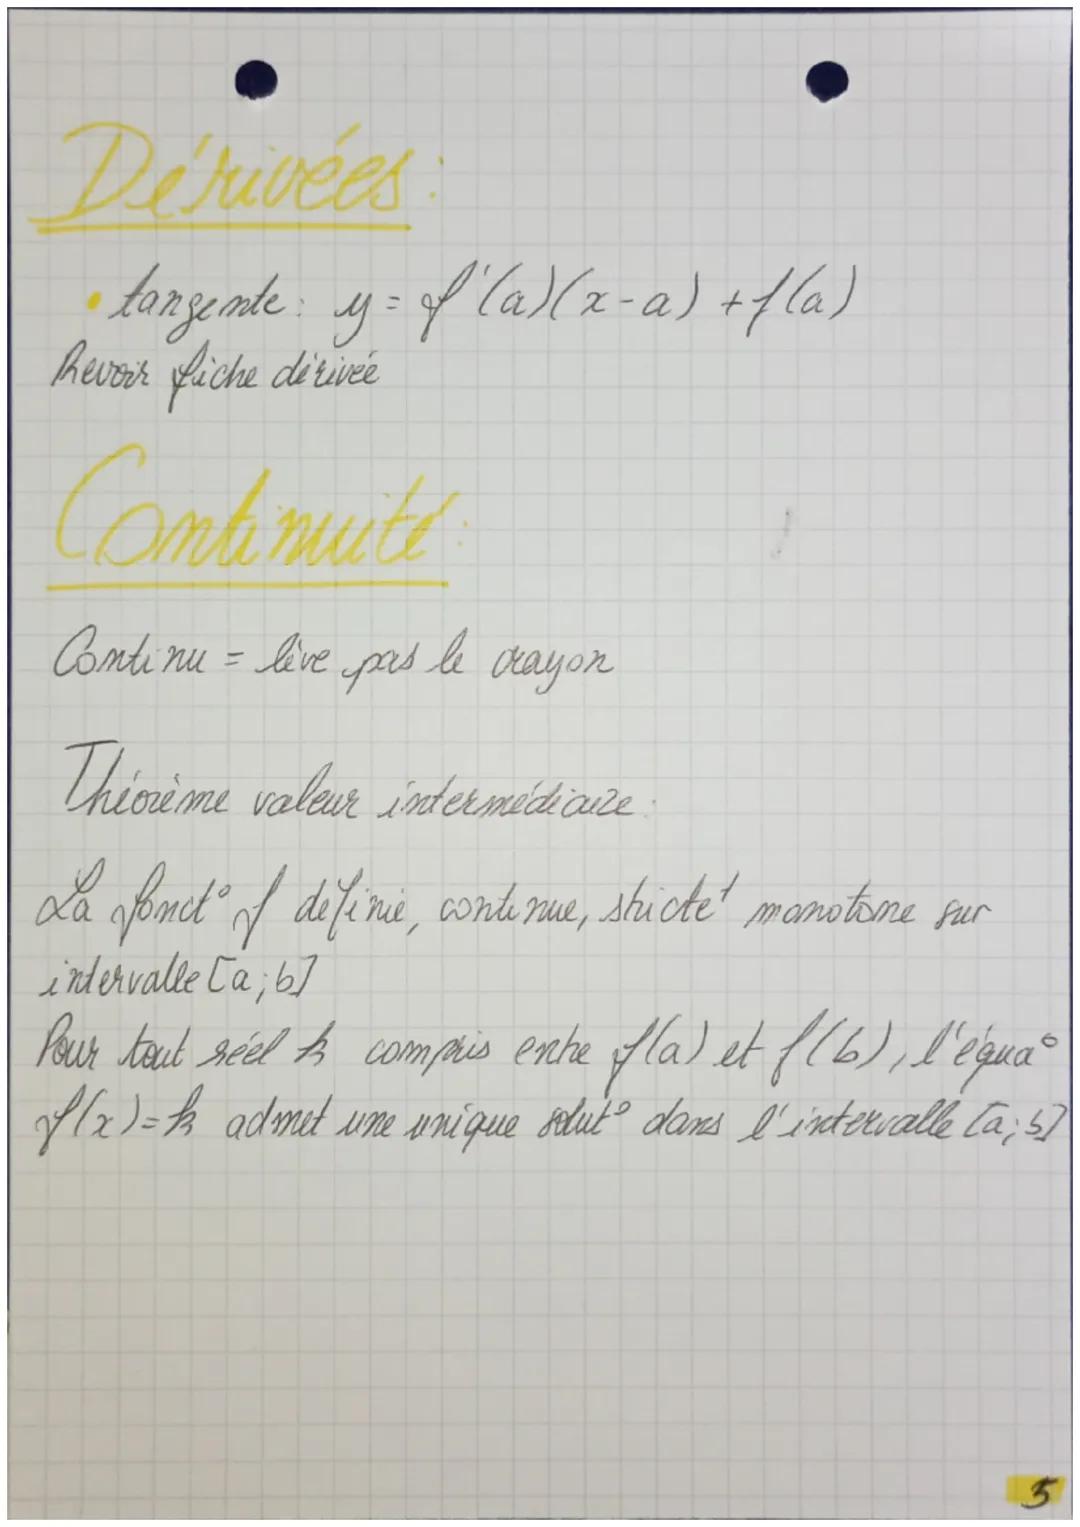 Dérivées :
• tangente : y = f'(a)(x-a) + f(a)
Revoir fiche dérivée
Continuité :
Continu = lève pas le crayon
Théorème valeur intermédiaire :
La fonct° f définie, continue, stricteᵗ monotone sur
intervalle [a;b]
Pour tout réel k compris entre f(a) et f(b), l'équa°
f(x)=k admet une unique solut° dans l'intervalle [a;b]
5